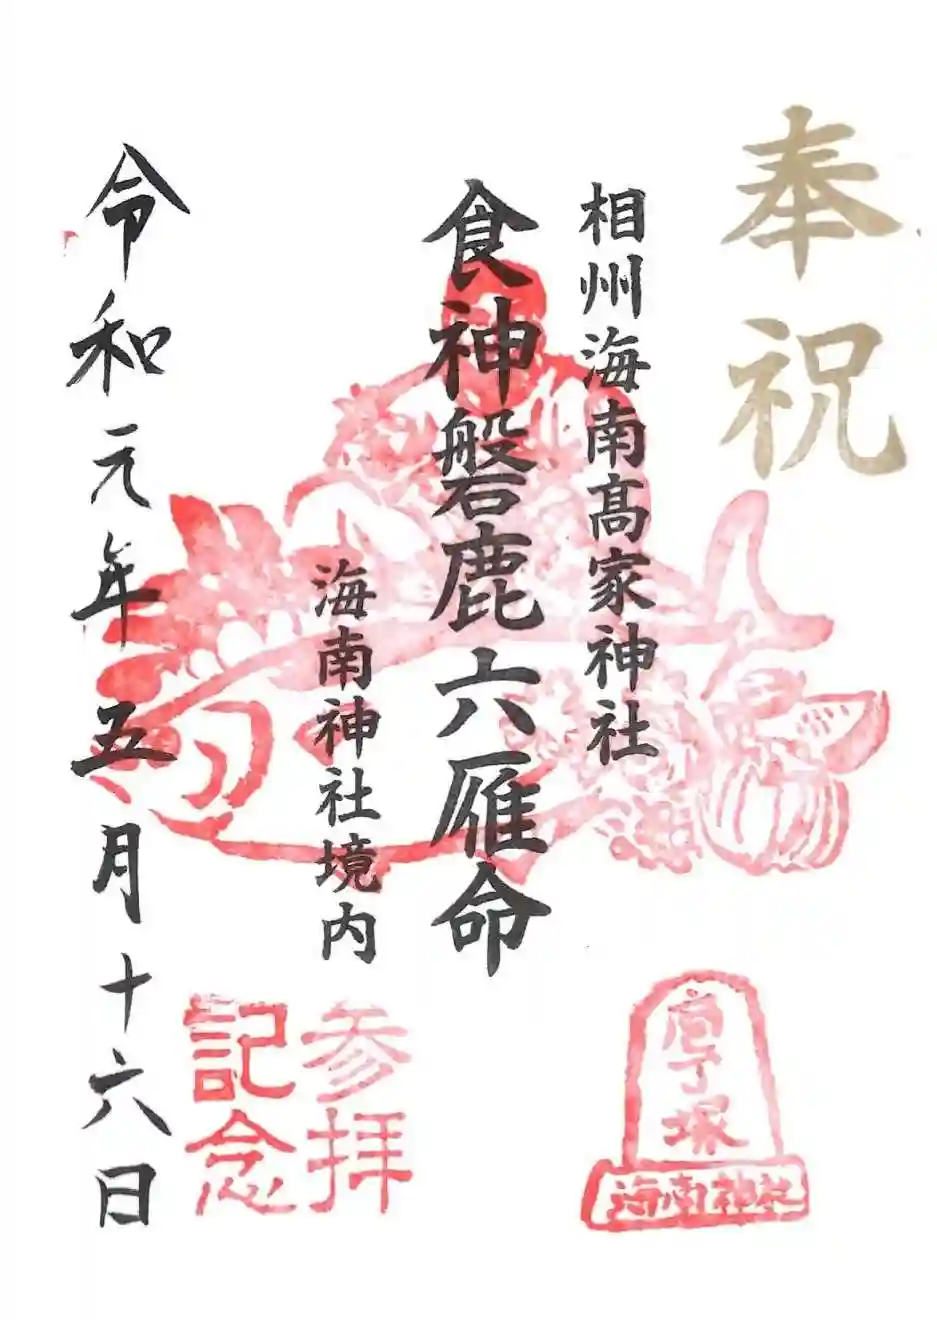 奉祝
相州海南高家神社
食神磐鹿六雁命
海南神社境内
令和元年五月十六日
参拝
記念
庖丁塚
海南神社